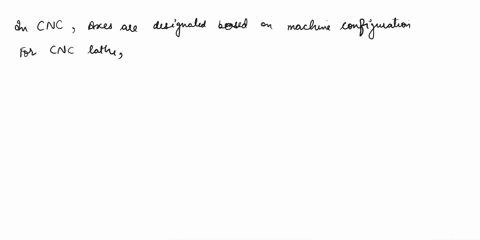 In CNC, Axes are designated based on machine configuration
For CNC lathe,